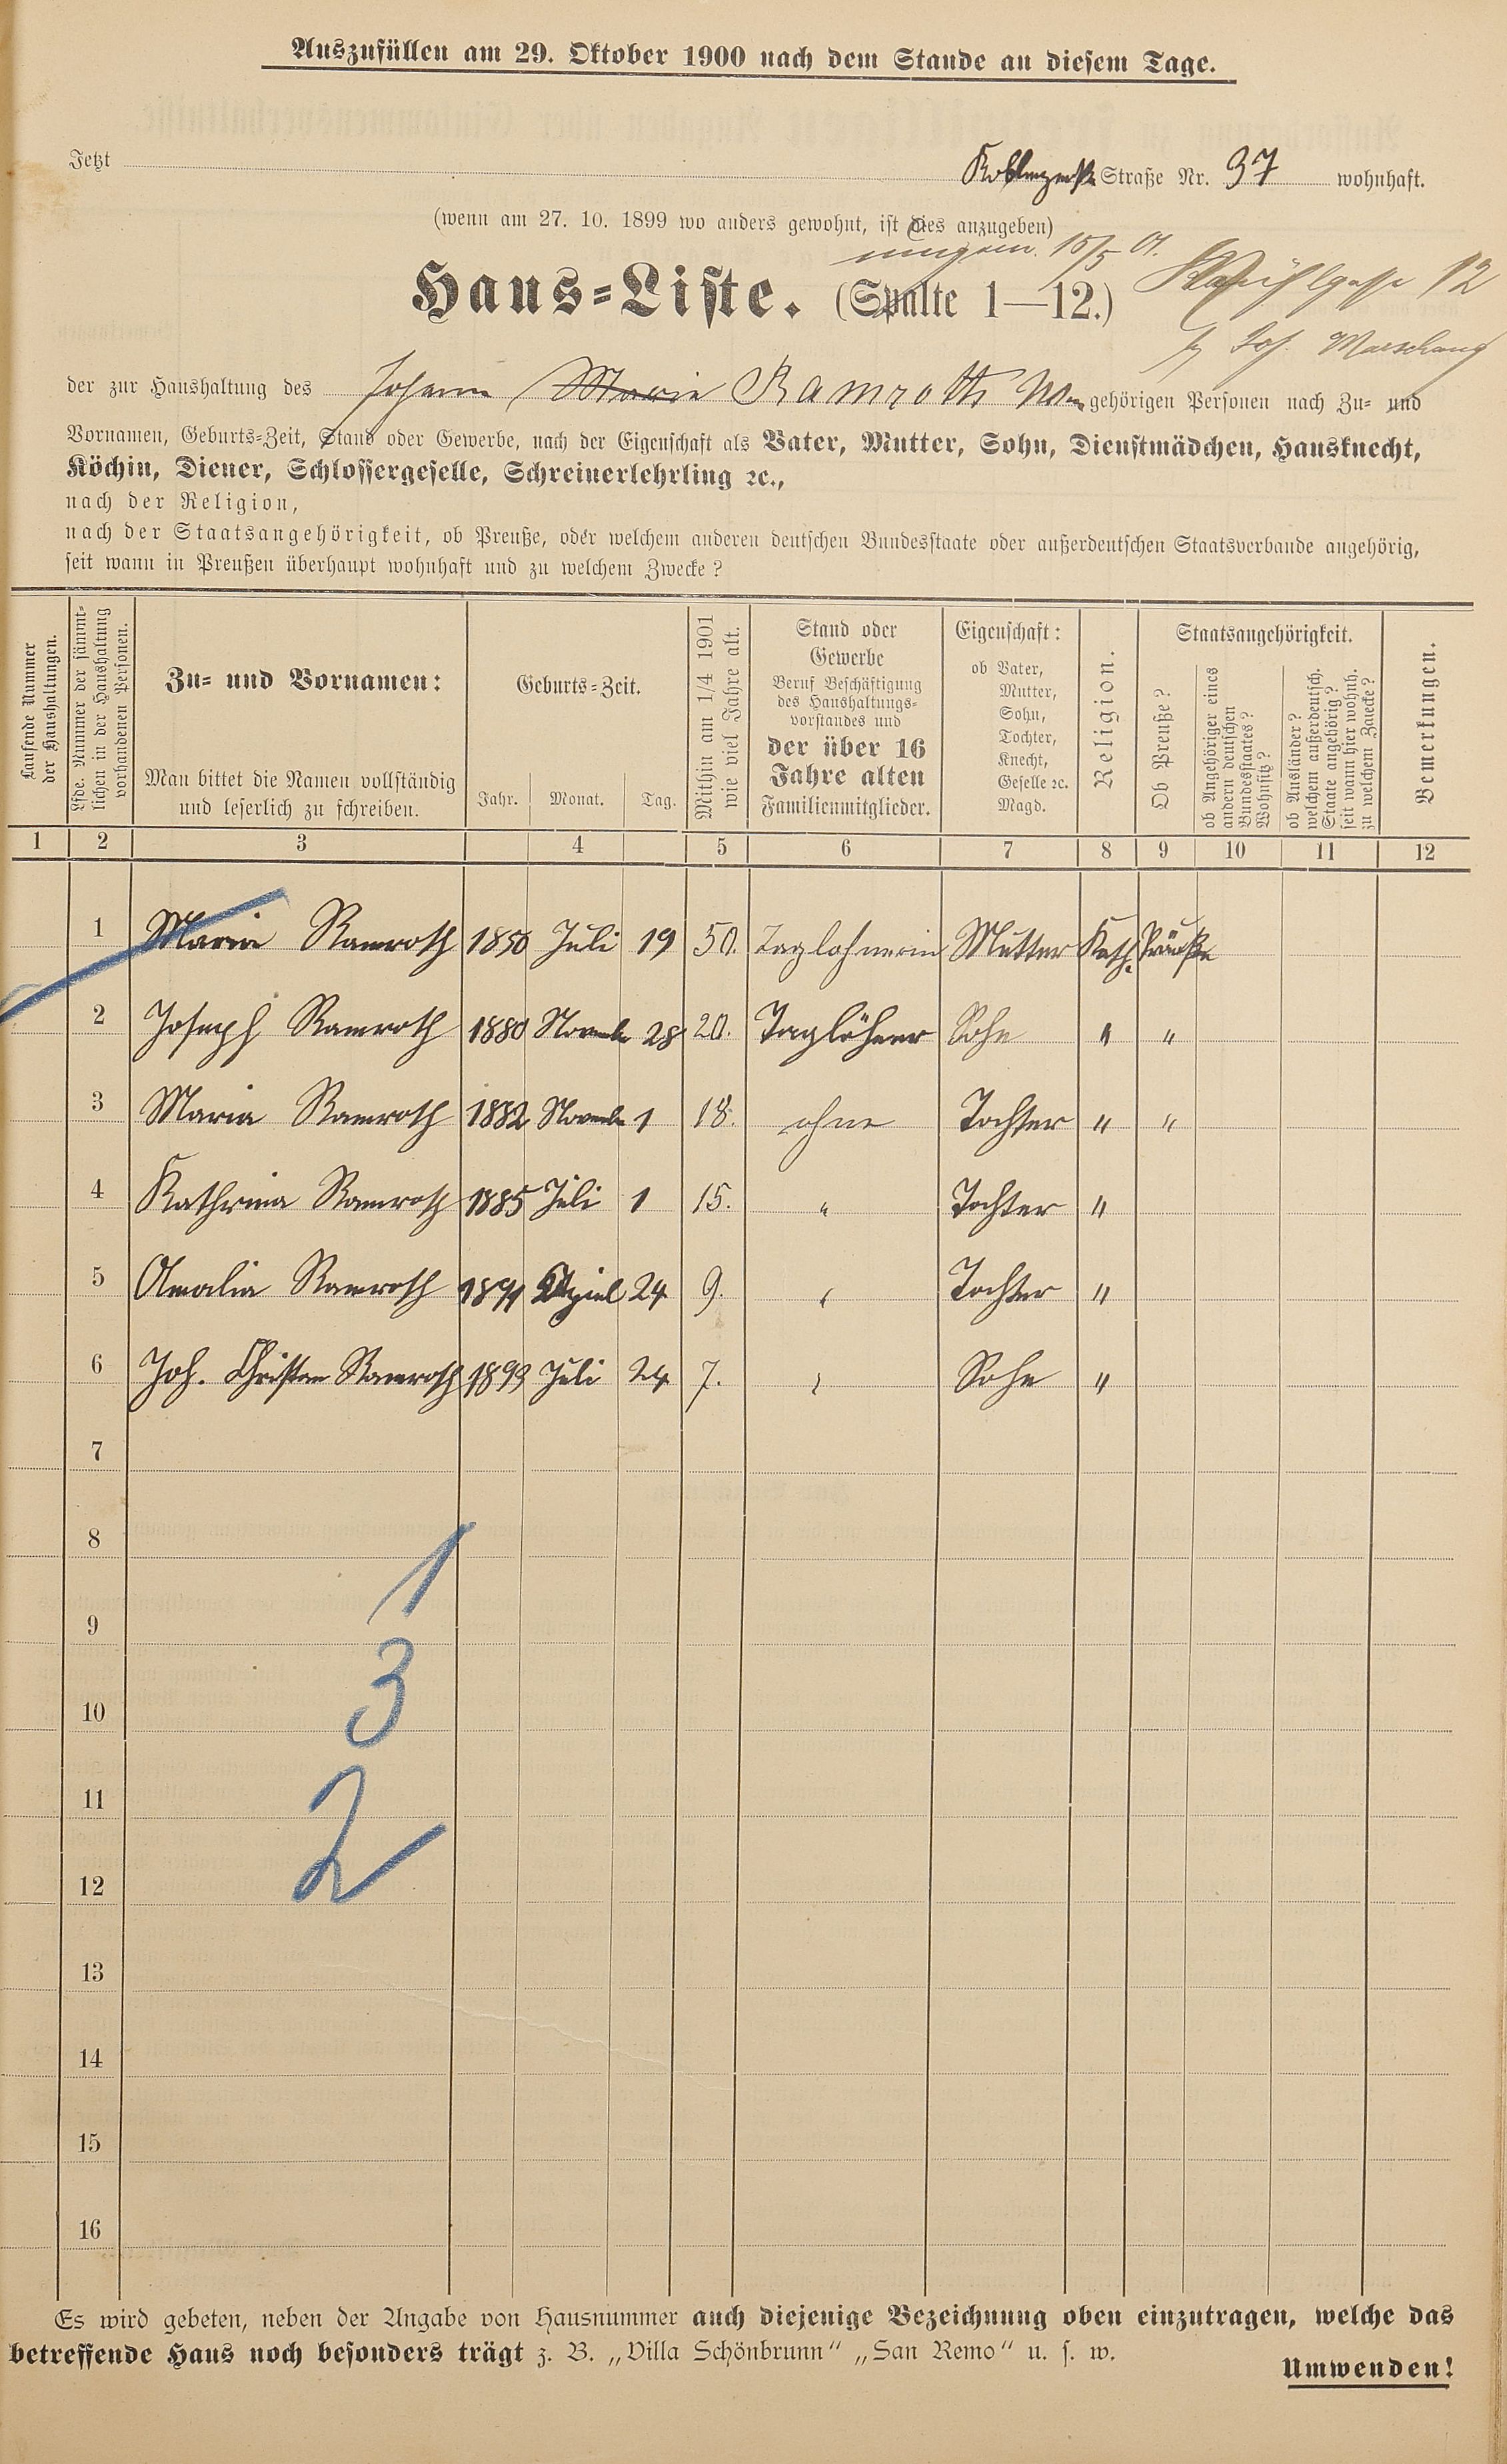 Auszufüllen am 29. Oktober 1900 nach dem Stande an diesem Tage.
Jetzt Koblenzerstr Straße Nr. 37 wohnhaft.
(wenn am 27. 10. 1899 wo anders gewohnt, ist dies anzugeben)
15/5 01.
Haus-Liste. (Spalte 1—12.)
12
Jos. Marschang
der zur Haushaltung des Johann Marie Ramroth Wwe gehörigen Personen nach Zu- und
Vornamen, Geburts-Zeit, Stand oder Gewerbe, nach der Eigenschaft als Vater, Mutter, Sohn, Dienstmädchen, Hausknecht,
Köchin, Diener, Schlossergeselle, Schreinerlehrling ꝛc.,
nach der Religion,
nach der Staatsangehörigkeit, ob Preuße, oder welchem anderen deutschen Bundesstaate oder außerdeutschen Staatsverbande angehörig,
seit wann in Preußen überhaupt wohnhaft und zu welchem Zwecke?
Laufende Nummer der Haushaltungen.
Lfde. Nummer der sämmtlichen in der Haushaltung vorhandenen Personen.
Zu- und Vornamen:
Man bittet die Namen vollständig
und leserlich zu schreiben.
Geburts-Zeit.
Jahr. Monat. Tag.
Mithin am 1/4 1901 wie viel Jahre alt.
Stand oder
Gewerbe
Beruf Beschäftigung
des Haushaltungs-
vorstandes und
der über 16
Jahre alten
Familienmitglieder.
Eigenschaft:
ob Vater,
Mutter,
Sohn,
Tochter,
Knecht,
Geselle ꝛc.
Magd.
Religion.
Staatsangehörigkeit.
Ob Preuße?
ob Angehöriger eines andern deutschen Bundesstaates? Wohnsitz?
ob Ausländer? welchem außerdeutsch. Staate angehörig? seit wann hier wohnh. zu welchem Zwecke?
Bemerkungen.
1 2 3 4 5 6 7 8 9 10 11 12
1 Maria Ramroth 1850 Juli 19 50. Taglohnerin Mutter Kath. Präuße
2 Joseph Ramroth 1880 Novemb 28 20. Taglöhner Sohn " "
3 Maria Ramroth 1882 Novemb 1 18. ohne Tochter " "
4 Kathrina Ramroth 1885 Juli 1 15. " Tochter "
5 Amalia Ramroth 1891 Apriel 24 9. " Tochter "
6 Joh. Christian Ramroth 1893 Juli 24 7. " Sohn "
7
8
1
9
3
10
11
2
12
13
14
15
16
Es wird gebeten, neben der Angabe von Hausnummer auch diejenige Bezeichnung oben einzutragen, welche das
betreffende Haus noch besonders trägt z. B. „Villa Schönbrunn" „San Remo" u. s. w.
Umwenden!